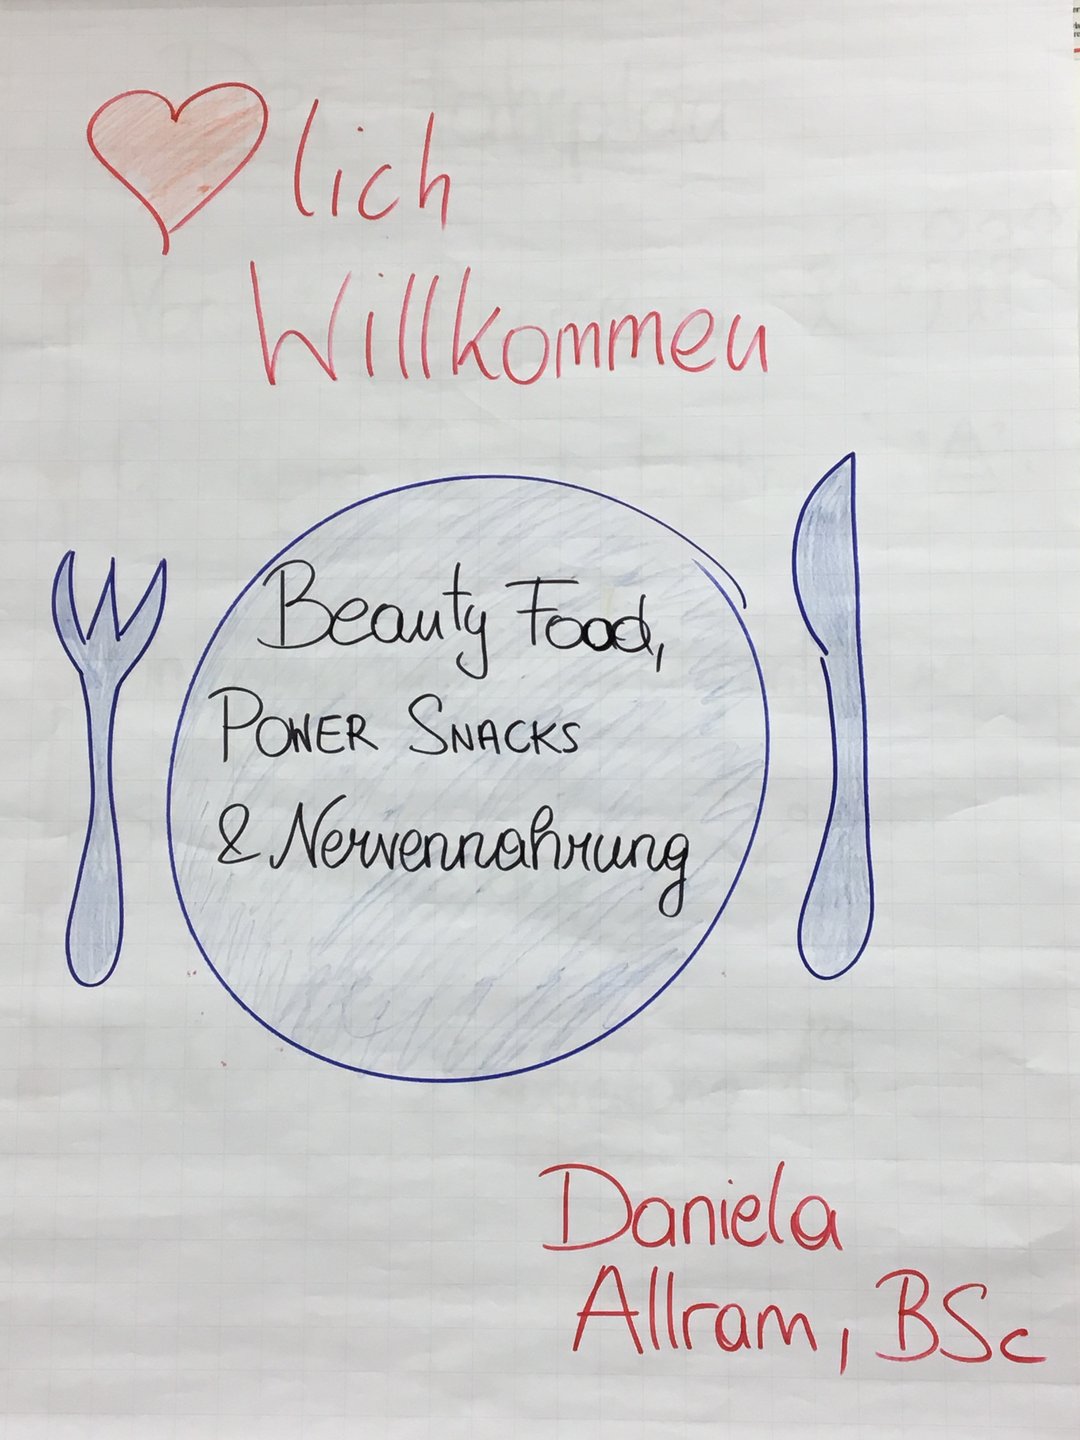 lich
Willkommen
Beauty Food,
POWER SNACKS
& Nervennahrung
Daniela
Allram, BSc